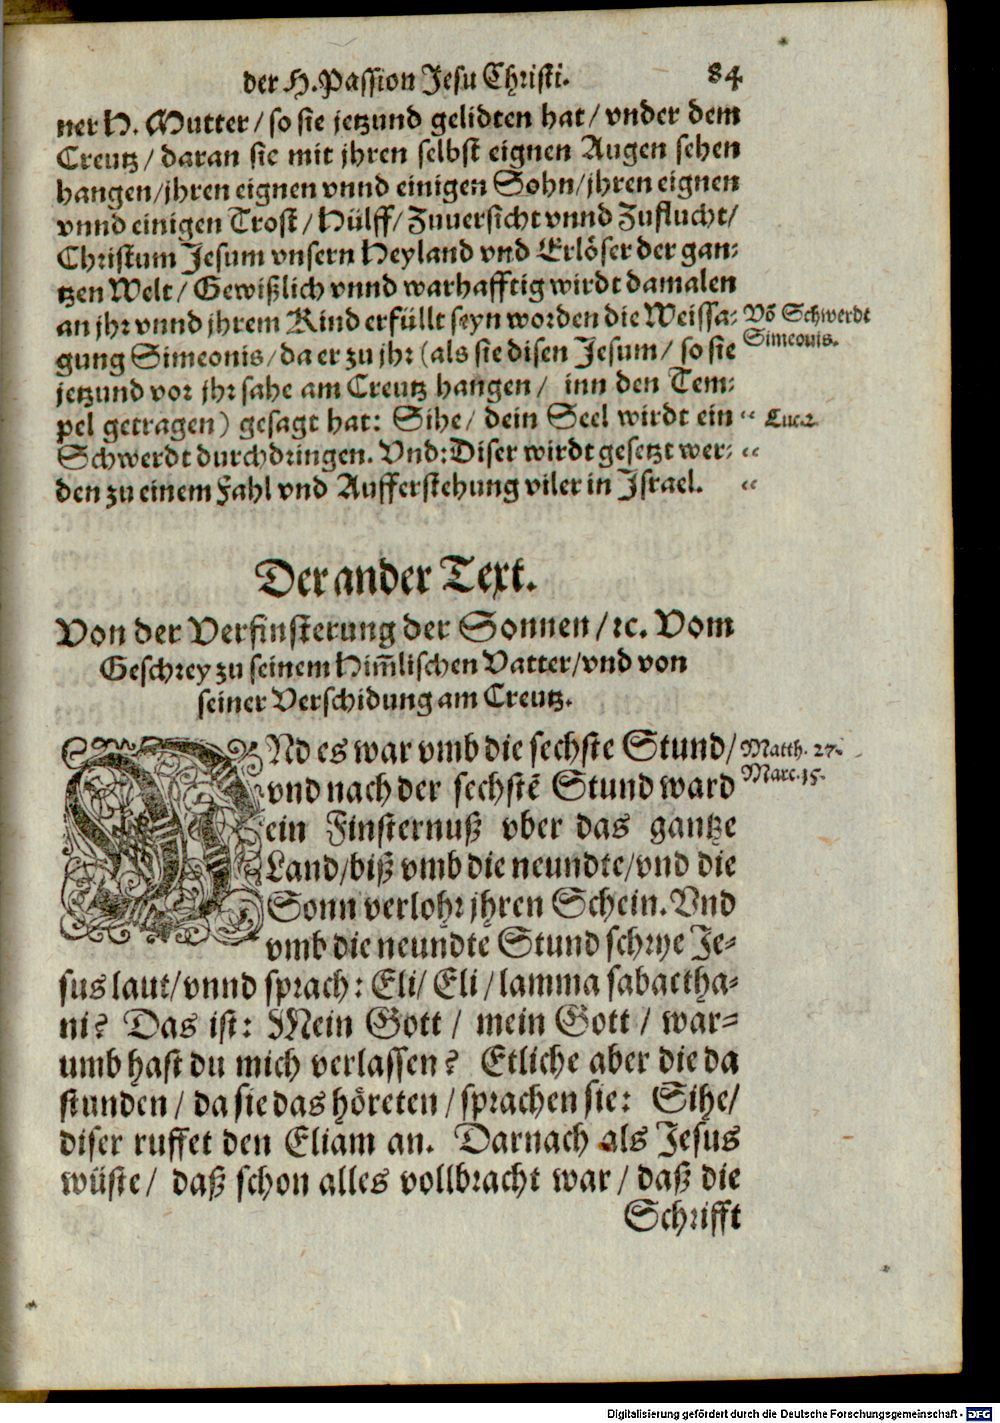 der H. Passion Jesu Christi. 84
ner H. Mutter / so sie jetzund gelidten hat / vnder dem
Creutz / daran sie mit jhren selbst eignen Augen sehen
hangen / jhren eignen vnnd einigen Sohn / jhren eignen
vnnd einigen Trost / Hülff / Zuuersicht vnnd Zuflucht /
Christum Jesum vnsern Heyland vnd Erlöser der gan-
tzen Welt / Gewißlich vnnd warhafftig wirdt damalen
an jhr vnnd jhrem Kind erfüllt seyn worden die Weissa-
Võ Schwerdt
Simeonis.
gung Simeonis / da er zu jhr (als sie disen Jesum / so sie
jetzund vor jhr sahe am Creutz hangen / inn den Tem-
pel getragen) gesagt hat: Sihe / dein Seel wirdt ein " Luc. 2.
Schwerdt durchdringen. Vnd: Diser wirdt gesetzt wer- "
den zu einem Fahl vnd Aufferstehung viler in Jsrael. "
Der ander Text.
Von der Verfinsterung der Sonnen / ꝛc. Vom
Geschrey zu seinem Him̃lischen Vatter / vnd von
seiner Verschidung am Creutz.
VNd es war vmb die sechste Stund / Matth. 27.
vnd nach der sechstẽ Stund ward Marc. 15.
ein Finsternuß vber das gantze
Land / biß vmb die neundte / vnd die
Sonn verlohr jhren Schein. Vnd
vmb die neundte Stund schrye Je-
sus laut / vnnd sprach: Eli / Eli / lamma sabactha-
ni? Das ist: Mein Gott / mein Gott / war-
umb hast du mich verlassen? Etliche aber die da
stunden / da sie das höreten / sprachen sie: Sihe /
diser ruffet den Eliam an. Darnach als Jesus
wüste / daß schon alles vollbracht war / daß die
Schrifft
Digitalisierung gefördert durch die Deutsche Forschungsgemeinschaft - DFG